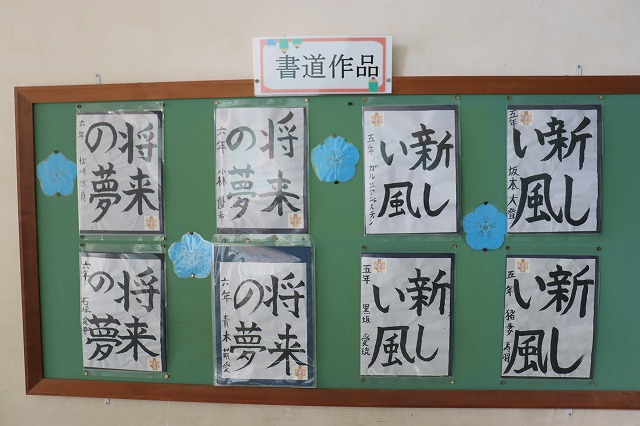 書道作品
将来
の夢
六年
将来
の夢
六年 小林
新し
い風
五年
新し
い風
五年 坂本 大登
将来
の夢
六年 石塚
将来
の夢
六年 青木
新し
い風
五年 黒坂 愛琉
新し
い風
五年 猪妻